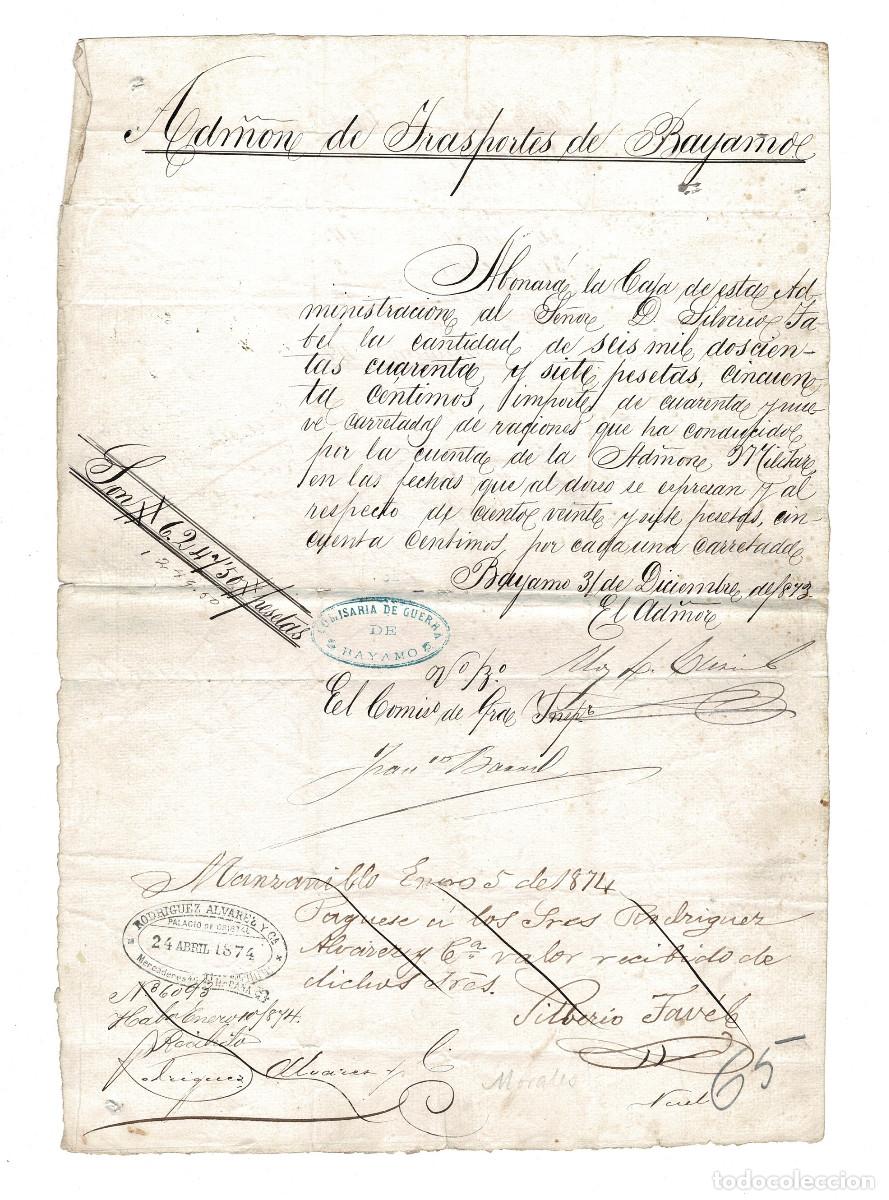 Admñon de Trasportes de Bayamo
Abonará la Caja de esta Ad-
ministracion al Señor D Silverio Fa-
bel la cantidad de seis mil doscien-
tas cuarenta y siete pesetas, cincuen
ta céntimos, importe de cuarenta y nue-
ve carretadas de raciones que ha conducido
por la cuenta de la Admñon Militar
en las fechas que al dorso se espresan y al
respecto de ciento veinte y siete pesetas, cin-
cuenta centimos, por cada una carretada
Bayamo 31 de Diciembre de 1873
El Admñor
Son # 6247'50 # pesetas
COMISARIA DE GUERRA
DE
BAYAMO
Vº Bº
El Comisº de Gra Inspr
Manzanillo Enero 5 de 1874
Paguese á los Sres Rodriguez
Alvarez y Cª valor recibido de
dichos Sres.
Silverio Favél
RODRIGUEZ ALVAREZ Y Cª
PALACIO DE CRISTAL
24 ABRIL 1874
HABANA
Nº 36093
Habª Enero 10/874.
Recibido
Rodriguez Alvarez y C
Morales
65
todocoleccion